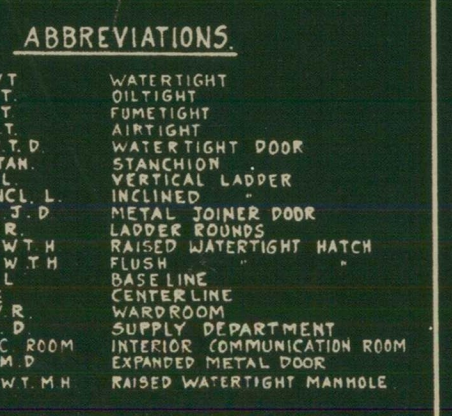 ABBREVIATIONS.
T WATERTIGHT
T. OILTIGHT
T. FUMETIGHT
.T. AIRTIGHT
.T. D. WATERTIGHT DOOR
TAN. STANCHION
L. VERTICAL LADDER
NCL. L. INCLINED "
J. D METAL JOINER DOOR
R. LADDER ROUNDS
W T. H RAISED WATERTIGHT HATCH
W. T H FLUSH " "
L BASE LINE
CENTERLINE
.R. WARDROOM
. D. SUPPLY DEPARTMENT
C. ROOM INTERIOR COMMUNICATION ROOM
M. D EXPANDED METAL DOOR
W. T. M. H RAISED WATERTIGHT MANHOLE.